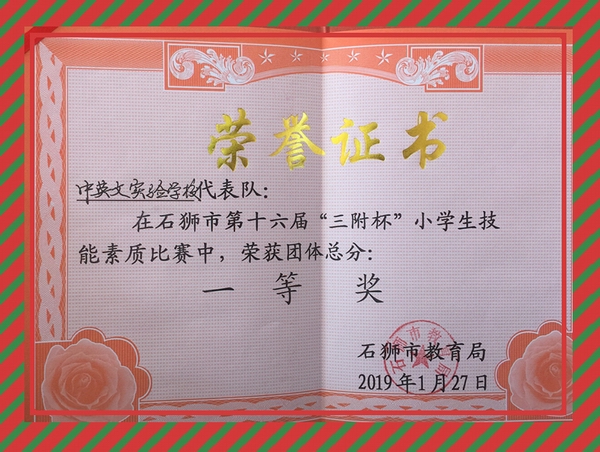 荣誉证书
中英文实验学校代表队：
在石狮市第十六届“三附杯”小学生技
能素质比赛中，荣获团体总分：
一等奖
石狮市教育局
2019年1月27日